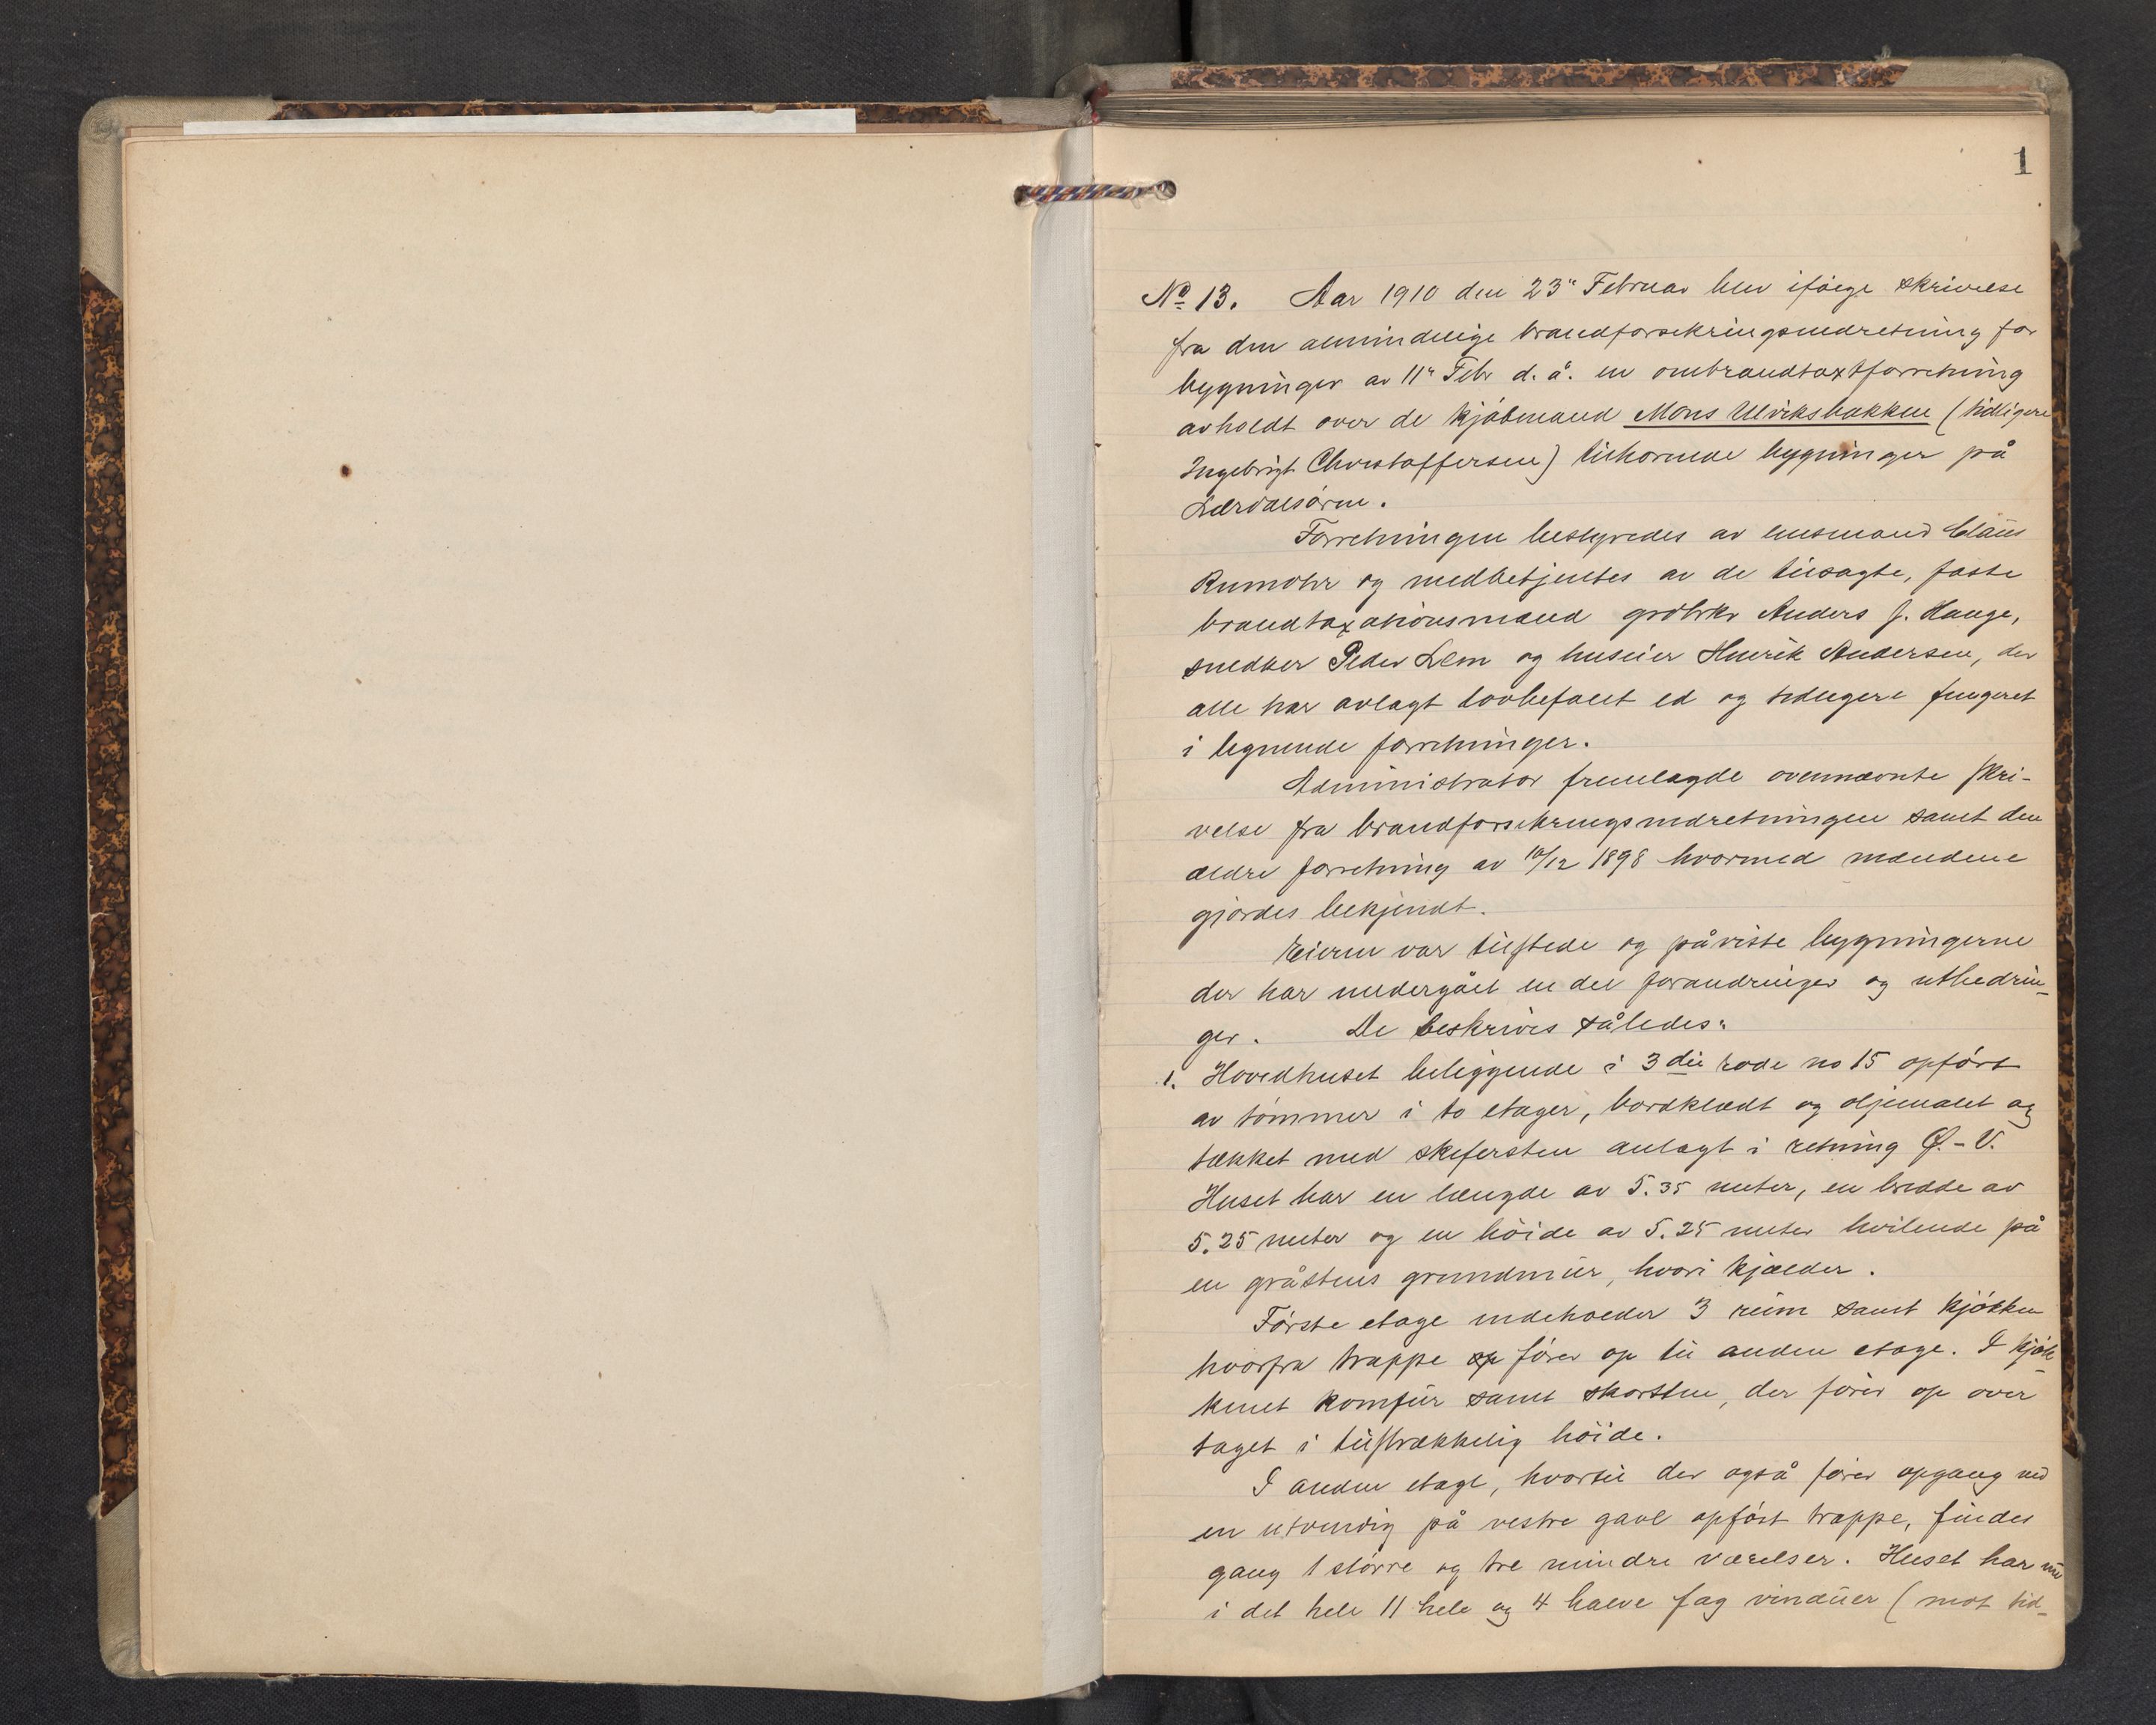 1
No 13. Aar 1910 den 23' Februar blev ifölge skrivelse
fra den almindelige brandforsikringsindretning for
bygninger av 11' Febr d. å. en ombrandtaxtforretning
avholdt over de kjöbmand Mons Ulviksbakken (tidligere
Ingebrigt Christoffersen) tilhörende bygninger på
Lærdalsören.
Forretningen bestyredes av lensmand Claus
Rumohr og medbetjentes av de tilsagte, faste
brandtaxationsmænd grdbrkr Anders J. Hauge,
snedker Peder Lem og huseier Henrik Andersen, der
alle har avlagt lovbefalet ed og tidligere fungeret
i lignende forretninger.
Administrator fremlagde ovennævnte skri-
velse fra brandforsikringsindretningen samt den
ældre forretning av 10/12 1898 hvormed mændene
gjordes bekjendt.
Eieren var tilstede og påviste bygningerne
der har undergået en del forandringer og utbedrin-
ger. De beskrives således:
1. Hovedhuset beliggende i 3die rode no 15 opfört
av tömmer i to etager, bordklædt og oljemalet og
tækket med skifersten anlagt i retning Ø.-V.
Huset har en længde av 5.35 meter, en bredde av
5.25 meter og en höide av 5.25 meter hvilende på
en gråstens grundmur, hvori kjælder.
Förste etage indeholder 3 rum samt kjökken
hvorfra trappe op förer op til anden etage. I kjök-
kenet komfur samt skorsten, der förer op over
taget i tilstrækkelig höide.
I anden etage, hvortil der også förer opgang ved
en utvendig på vestre gavl opfört trappe, findes
gang 1 större og tre mindre værelser. Huset har nu
i det hele 11 hele og 4 halve fag vinduer (mot tid-